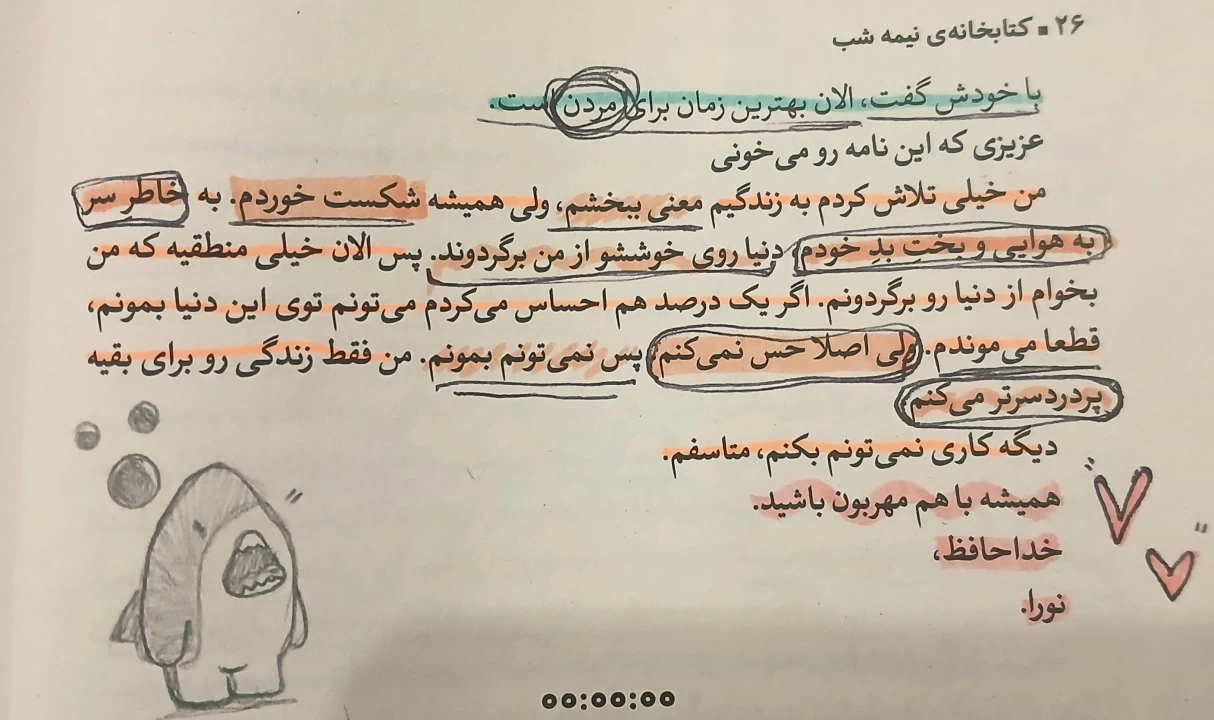 ۲۶ ▪ کتابخانه‌ی نیمه شب
با خودش گفت، الان بهترین زمان برای مردن است.
عزیزی که این نامه رو می‌خونی
من خیلی تلاش کردم به زندگیم معنی ببخشم، ولی همیشه شکست خوردم. به خاطر سر
به هوایی و بخت بدِ خودم، دنیا روی خوششو از من برگردوند. پس الان خیلی منطقیه که من
بخوام از دنیا رو برگردونم. اگر یک درصد هم احساس می‌کردم می‌تونم توی این دنیا بمونم،
قطعا می‌موندم. ولی اصلا حس نمی‌کنم، پس نمی‌تونم بمونم. من فقط زندگی رو برای بقیه
پردردسرتر می‌کنم.
دیگه کاری نمی‌تونم بکنم، متاسفم.
همیشه با هم مهربون باشید.
خداحافظ،
نورا.
00:00:00